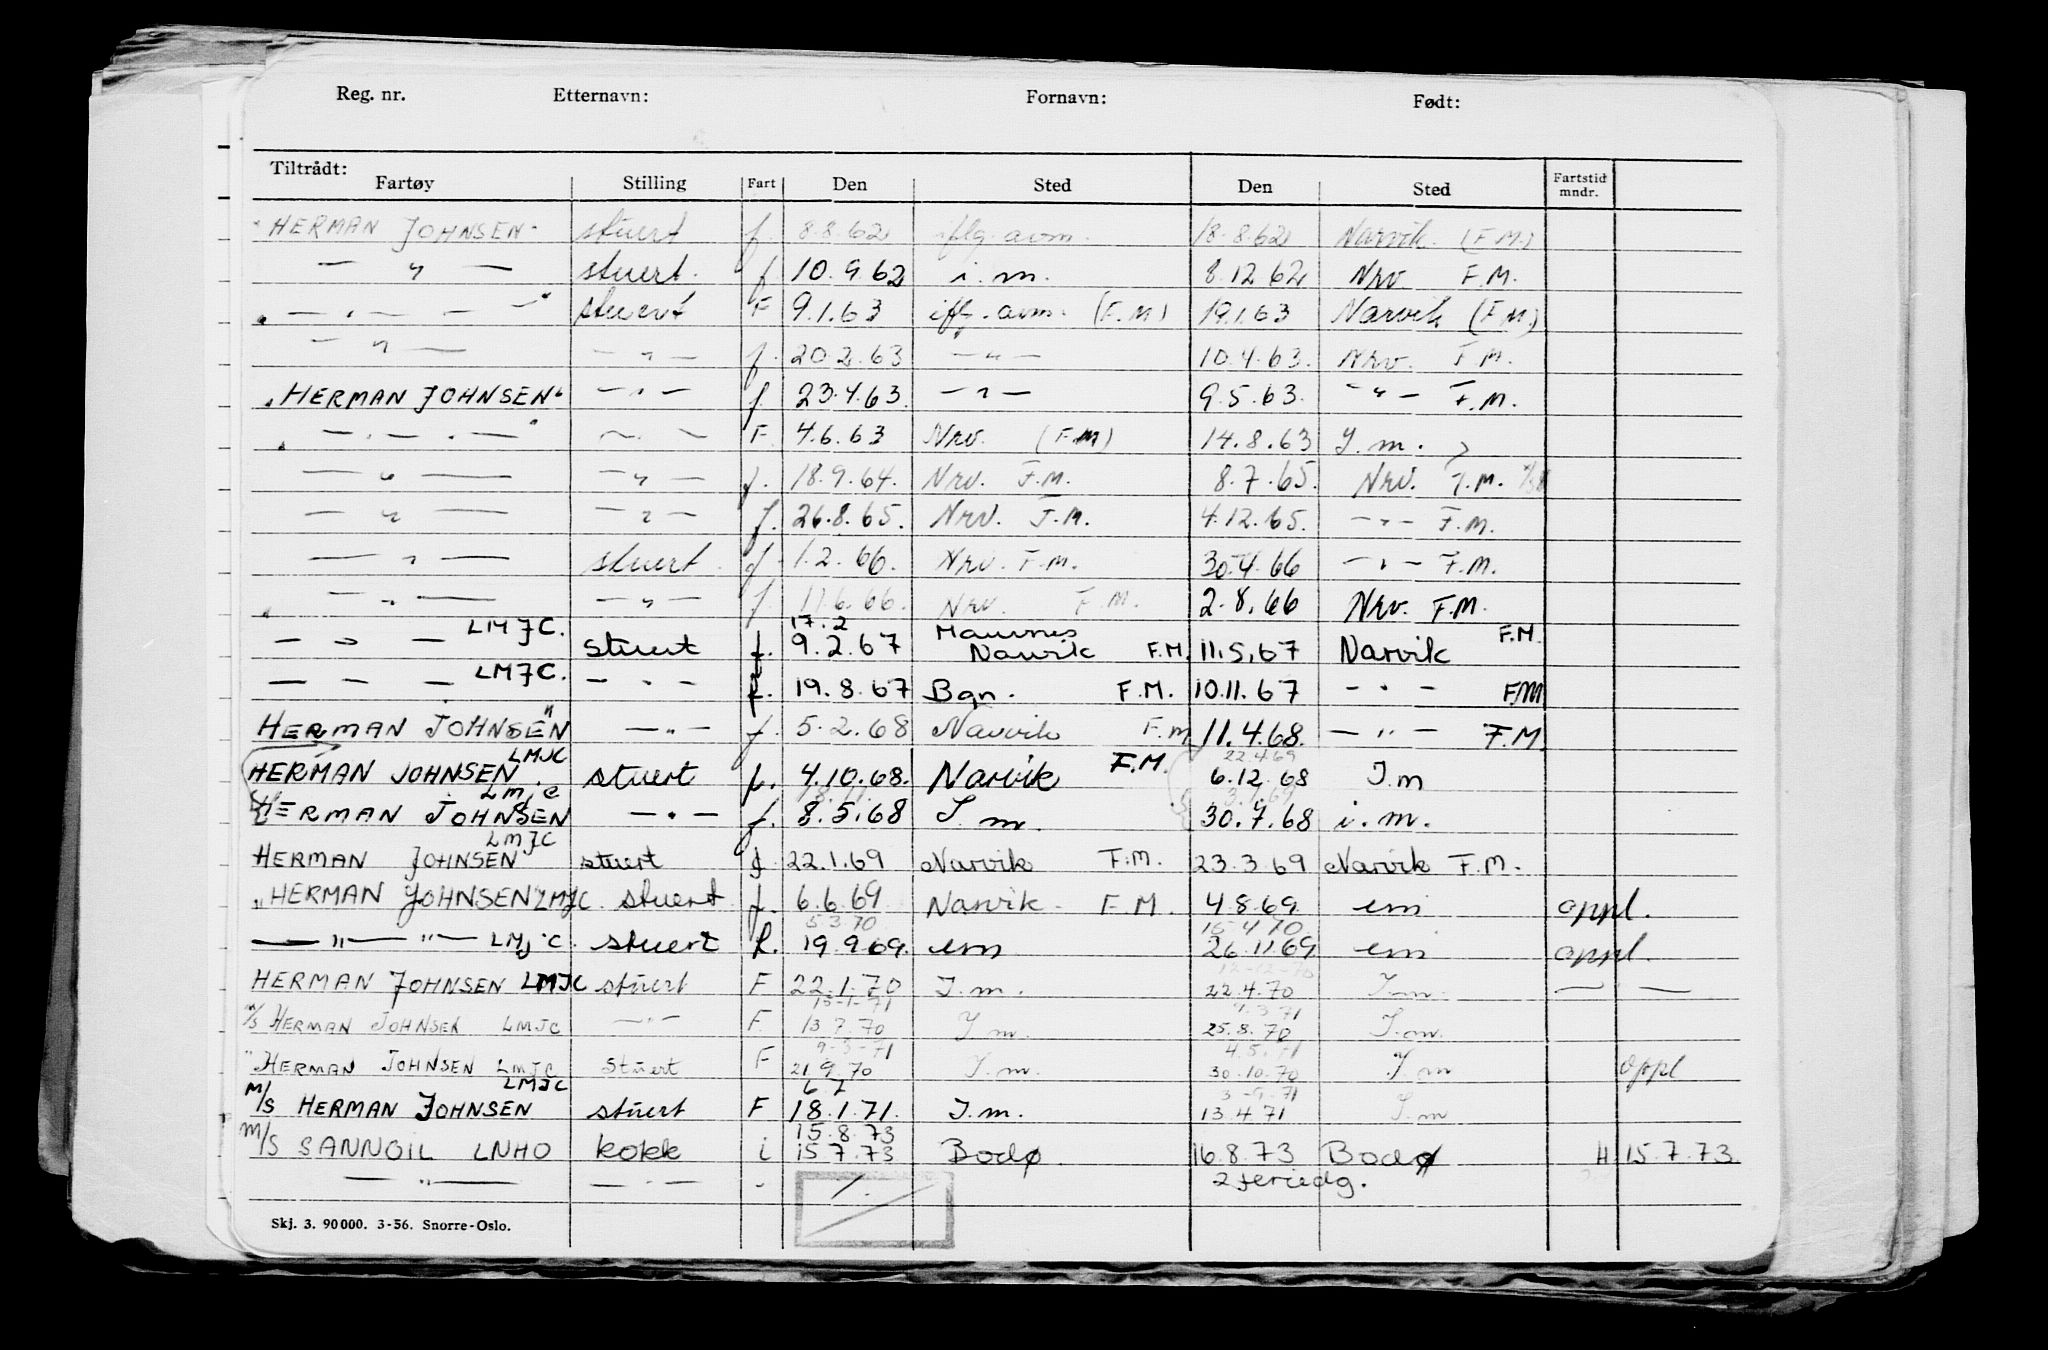 Reg. nr. Etternavn: Fornavn: Født:
Tiltrådt:
Fartøy Stilling Fart Den Sted Den Sted Fartstid mndr.
"HERMAN JOHNSEN" stuert f. 8.8.62 iflg. avm. 18.8.62 Narvik (F.M.)
— " — stuert. f 10.9.62 i.m. 8.12.62 Nrv F.M.
" — " — — " stuert F 9.1.63 iflg. avm. (F.M) 19.1.63 Narvik (F.M.)
— " — — " — f. 20.2.63 — " — 10.4.63. Nrv. F.M.
"HERMAN JOHNSEN" — " — f. 23.4.63. — " — 9.5.63. — " — F.M.
" — . — . — " — . — F. 4.6.63 Nrv. (F.M) 14.8.63 I.m.
— " — — " — f. 18.9.64. Nrv. F.M. 8.7.65. Nrv. F.M.
— " — — " — f. 26.8.65. Nrv. F.M. 4.12.65. — " — F.M.
— " — stuert. f. 1.2.66. Nrv. F.M. 30.4.66 — " — F.M.
" — " — — " — f. 11.6.66. Nrv. F.M. 2.8.66 Nrv. F.M.
17.2
— " — LMJC. stuert f. 9.2.67 Narvik F.M. 11.5.67 Narvik F.M.
— — — LMJC. — " — f. 19.8.67 Bgn. F.M. 10.11.67 — " — F.M
HERMAN JOHNSEN" — " — f. 5.2.68 Narvik F.m 11.4.68. — " — F.M.
22.4.69
HERMAN JOHNSEN LMJC stuert f. 4.10.68. Narvik F.M. 6.12.68 I.m
HERMAN JOHNSEN LMJC — " — f. 8.5.68 I.m. 30.7.68 i.m.
HERMAN JOHNSEN LMJC stuert f. 22.1.69 Narvik F.M. 23.3.69 Narvik F.M.
"HERMAN JOHNSEN" LMJC stuert f. 6.6.69 Narvik F.M. 4.8.69 em oppl.
5.3.70 16-4-70
— " — " — LMJC. stuert f. 19.9.69. em 26.11.69 em oppl.
12-12-70
HERMAN JOHNSEN LMJC stuert F 22.1.70 I.m. 22.4.70 I.m. — " —
15-1-71
M/S HERMAN JOHNSEN LMJC — " — F. 13.7.70 I.m. 25.8.70 I.m.
9-3-71 4.5.71
"HERMAN JOHNSEN LMJC stuert F 21.9.70 I.m. 30.10.70 I.m oppl
6 7 3-9-71
M/S HERMAN JOHNSEN LMJC stuert F 18.1.71. I.m. 13.4.71 I.m
15.8.73
M/S SANNOIL LNHO kokk i 15.7.73 Bodø. 16.8.73 Bodø H 15.7.73.
— " — — " — - 1. 2 feriedg.
Skj. 3. 90 000. 3-56. Snorre-Oslo.